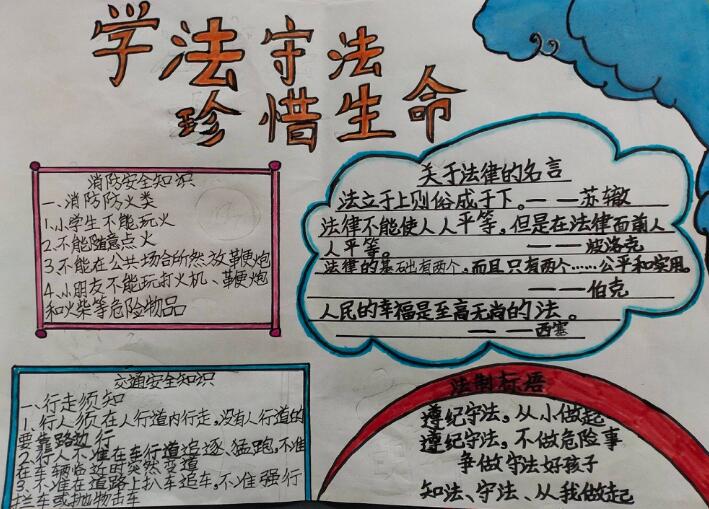 学法守法
珍惜生命
消防安全知识
一、消防防火类
1、小学生不能玩火
2、不能随意点火
3、不能在公共场合的燃放鞭炮
4、小朋友不能玩打火机、鞭炮
和火柴等危险物品
关于法律的名言
法立于上则俗成于下。——苏辙
法律不能使人人平等，但是在法律面前人
人平等。——波洛克
法律的基础也有两个，而且只有两个……公平和实用。
——伯克
人民的幸福是至高无尚的法。
——西塞
交通安全知识
一、行走须知
1、行人须在人行道内行走，没有人行道的
要靠路边行
2、行人不准在车行道追逐、猛跑，不准
在车辆临近时突然变道
3、不准在道路上扒车追车，不准强行
拦车或抛物击车
法制标语
遵纪守法，从小做起
遵纪守法，不做危险事
争做守法好孩子
知法、守法、从我做起